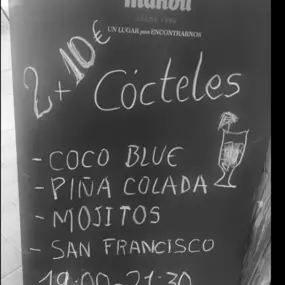 Mahou
DESDE 1890
UN LUGAR para ENCONTRARNOS
2+10€
Cócteles
- COCO BLUE
- PIÑA COLADA
- MOJITOS
- SAN FRANCISCO
19:00-21:30